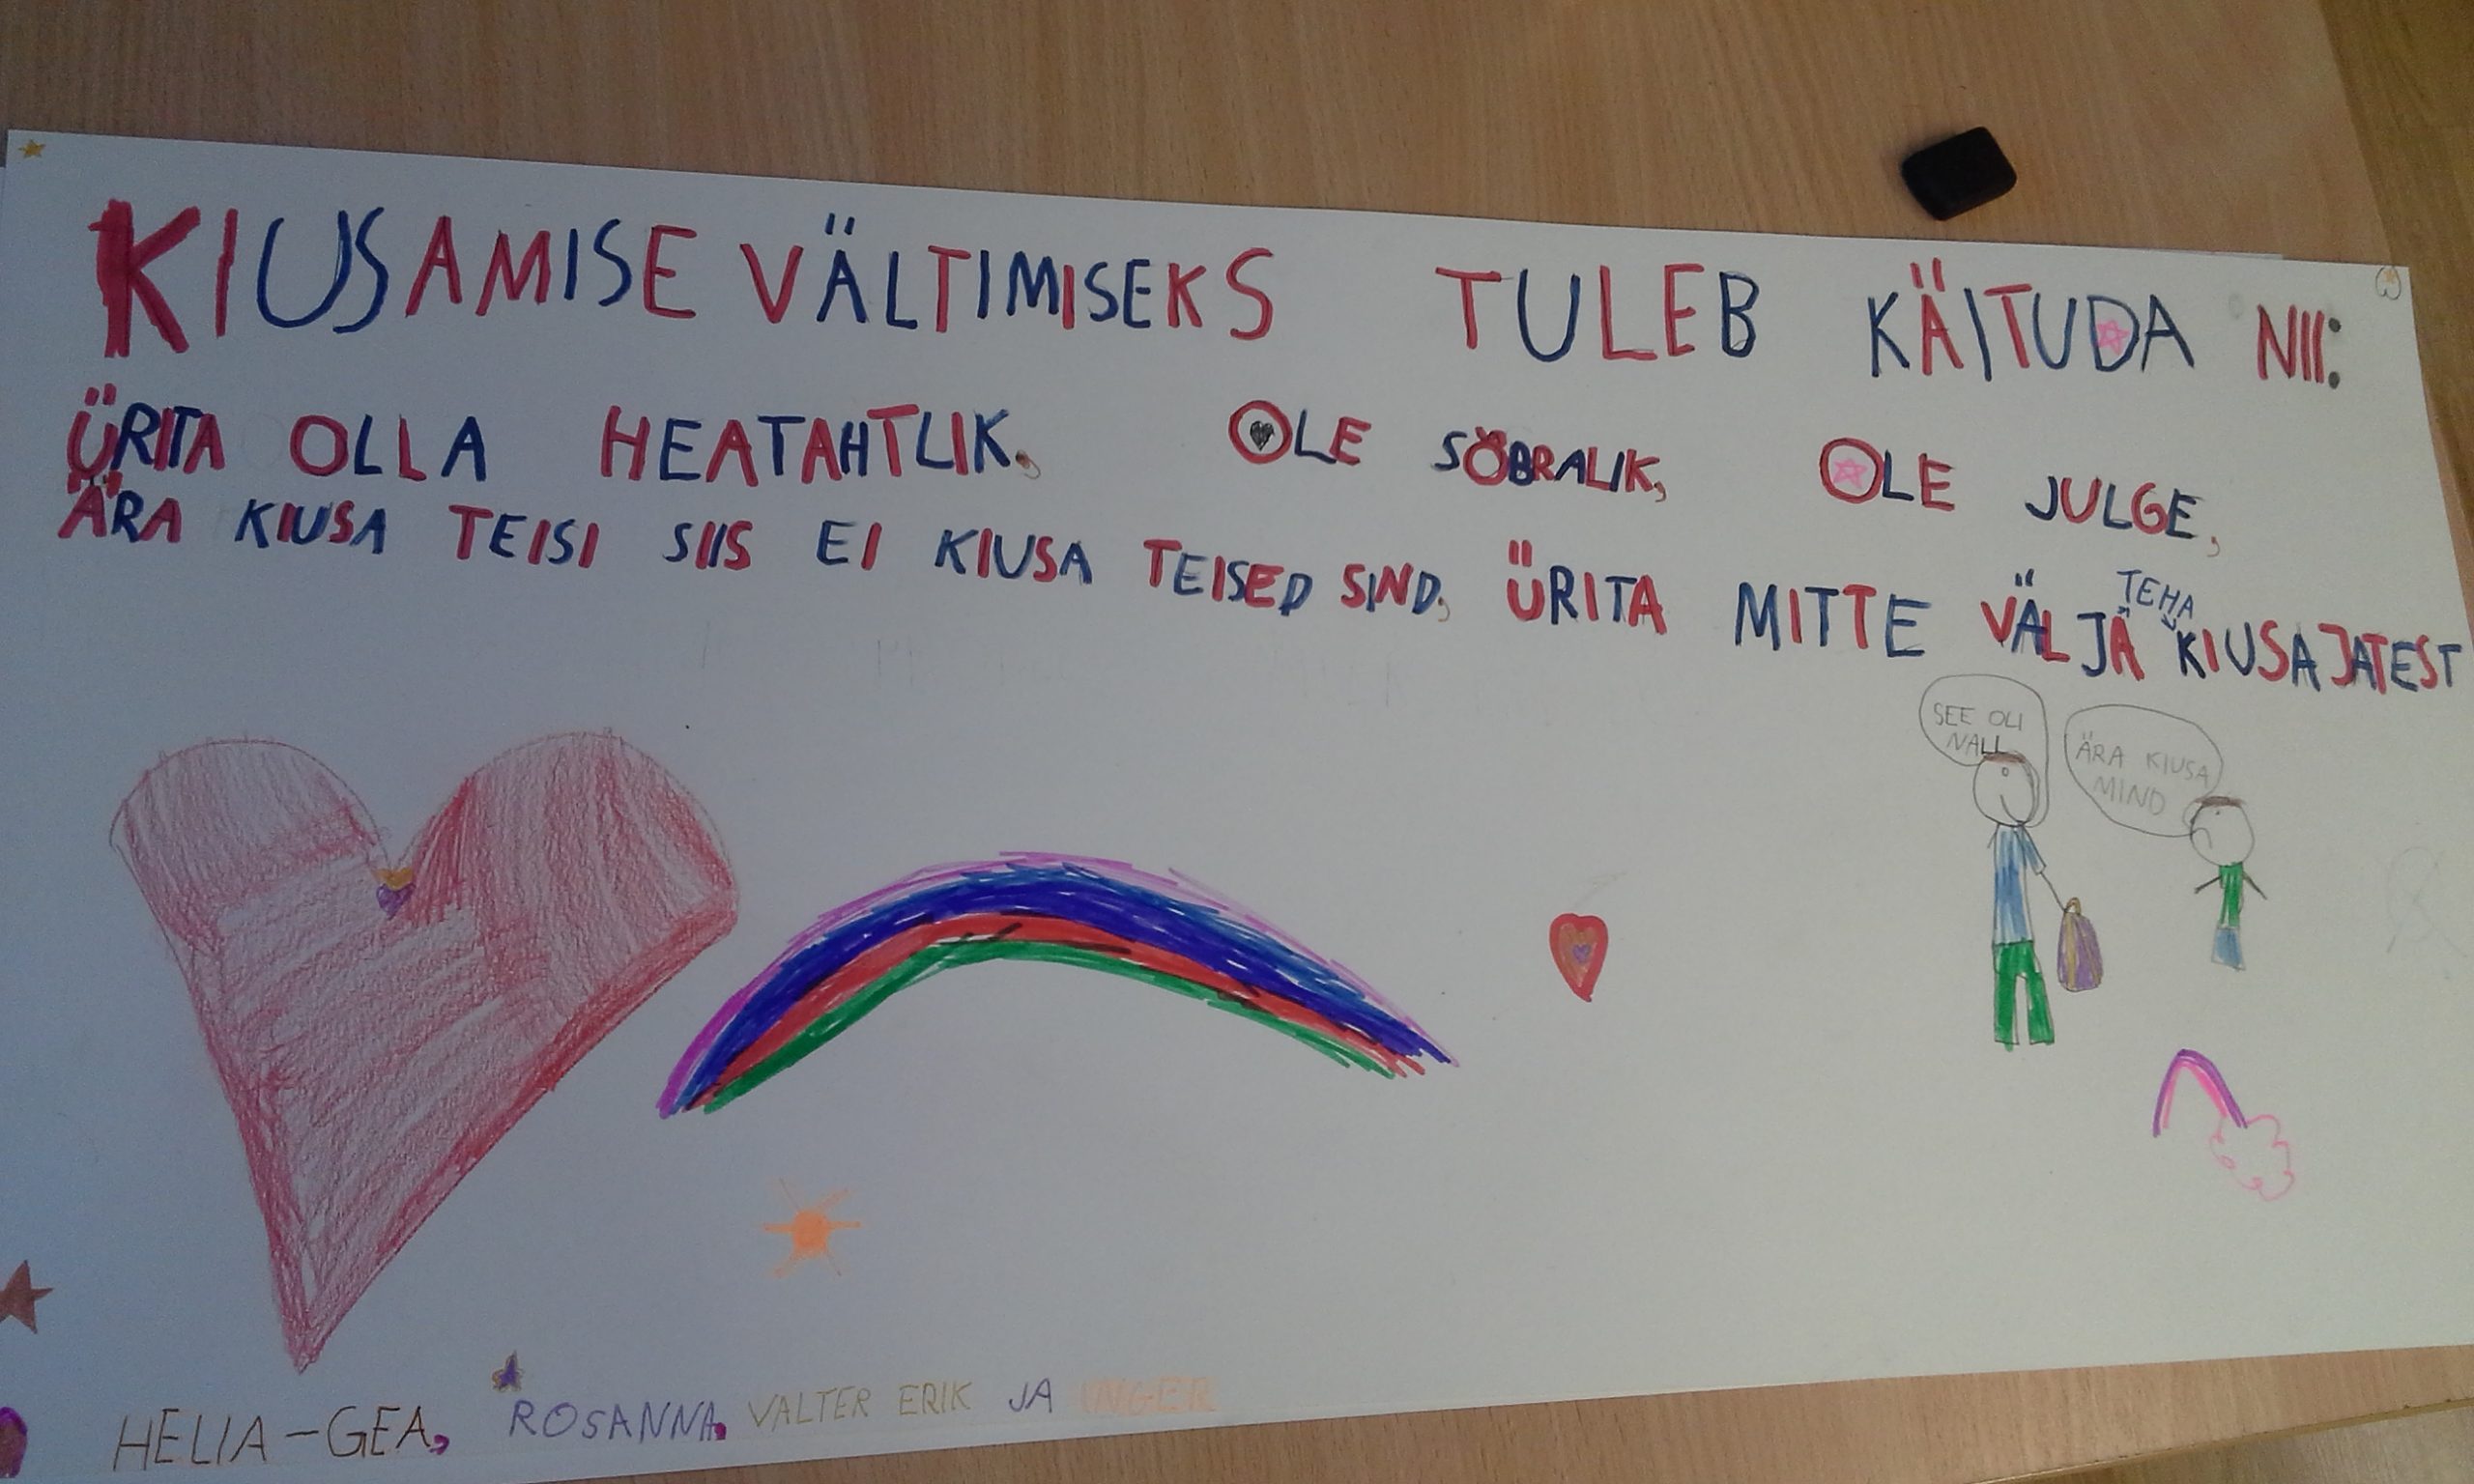 KIUSAMISE VÄLTIMISEKS TULEB KÄITUDA NII:
ÜRITA OLLA HEATAHTLIK, OLE SÕBRALIK, OLE JULGE,
ÄRA KIUSA TEISI SIIS EI KIUSA TEISED SIND, ÜRITA MITTE VÄLJÄ TEHA KIUSAJATEST
SEE OLI
NALI
ÄRA KIUSA
MIND
HELIA-GEA, ROSANNA, VALTER ERIK JA INGER